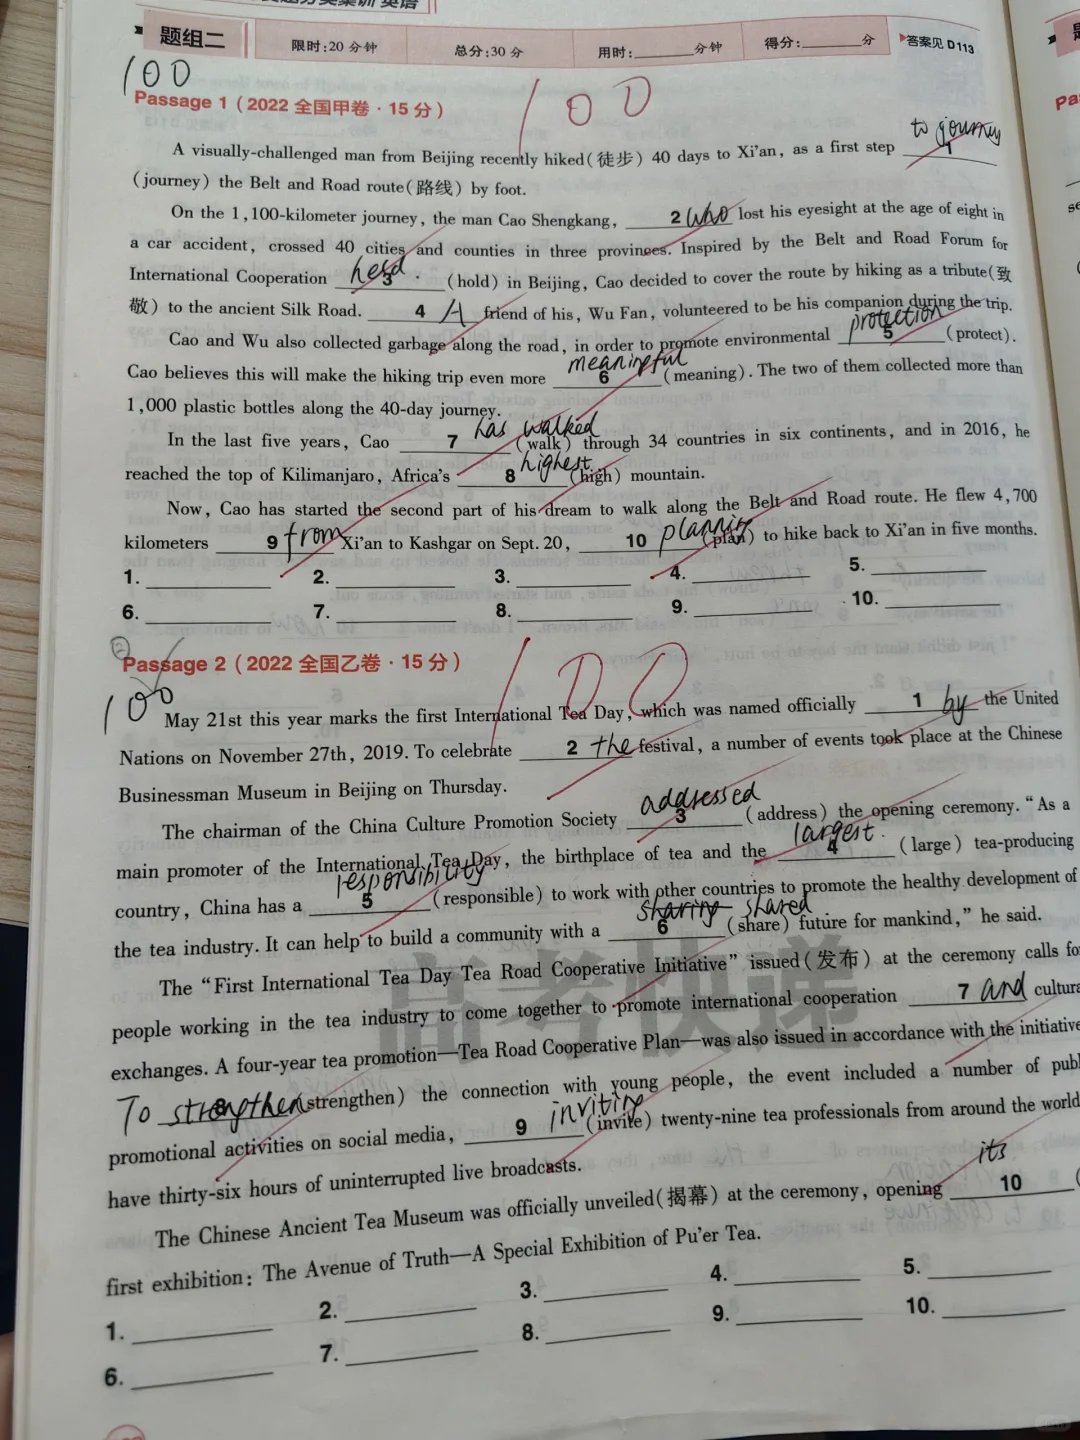 题组二 限时:20 分钟 总分:30 分 用时:______分钟 得分:______分 答案见 D113
100
100
Passage 1 (2022 全国甲卷·15 分)
to journey
A visually-challenged man from Beijing recently hiked(徒步) 40 days to Xi'an, as a first step 1
(journey) the Belt and Road route(路线) by foot.
On the 1,100-kilometer journey, the man Cao Shengkang, 2 who lost his eyesight at the age of eight in
a car accident, crossed 40 cities and counties in three provinces. Inspired by the Belt and Road Forum for
International Cooperation held 3 (hold) in Beijing, Cao decided to cover the route by hiking as a tribute(致
敬) to the ancient Silk Road. 4 A friend of his, Wu Fan, volunteered to be his companion during the trip.
Cao and Wu also collected garbage along the road, in order to promote environmental protection 5 (protect).
Cao believes this will make the hiking trip even more meaningful 6 (meaning). The two of them collected more than
1,000 plastic bottles along the 40-day journey.
In the last five years, Cao 7 has walked (walk) through 34 countries in six continents, and in 2016, he
reached the top of Kilimanjaro, Africa's 8 highest (high) mountain.
Now, Cao has started the second part of his dream to walk along the Belt and Road route. He flew 4,700
kilometers 9 from Xi'an to Kashgar on Sept. 20, 10 planning (plan) to hike back to Xi'an in five months.
1. 2. 3. 4. 5.
6. 7. 8. 9. 10.
Passage 2 (2022 全国乙卷·15 分)
100
100
May 21st this year marks the first International Tea Day, which was named officially 1 by the United
Nations on November 27th, 2019. To celebrate 2 the festival, a number of events took place at the Chinese
Businessman Museum in Beijing on Thursday.
The chairman of the China Culture Promotion Society addressed 3 (address) the opening ceremony. "As a
main promoter of the International Tea Day, the birthplace of tea and the largest 4 (large) tea-producing
country, China has a responsibility 5 (responsible) to work with other countries to promote the healthy development of
the tea industry. It can help to build a community with a sharing shared 6 (share) future for mankind," he said.
The "First International Tea Day Tea Road Cooperative Initiative" issued(发布) at the ceremony calls for
people working in the tea industry to come together to promote international cooperation 7 and cultura
exchanges. A four-year tea promotion—Tea Road Cooperative Plan—was also issued in accordance with the initiative
To strengthen 8 (strengthen) the connection with young people, the event included a number of publ
promotional activities on social media, 9 inviting (invite) twenty-nine tea professionals from around the world
have thirty-six hours of uninterrupted live broadcasts.
its
The Chinese Ancient Tea Museum was officially unveiled(揭幕) at the ceremony, opening 10 (
first exhibition: The Avenue of Truth—A Special Exhibition of Pu'er Tea.
1. 2. 3. 4. 5.
6. 7. 8. 9. 10.
高考快递